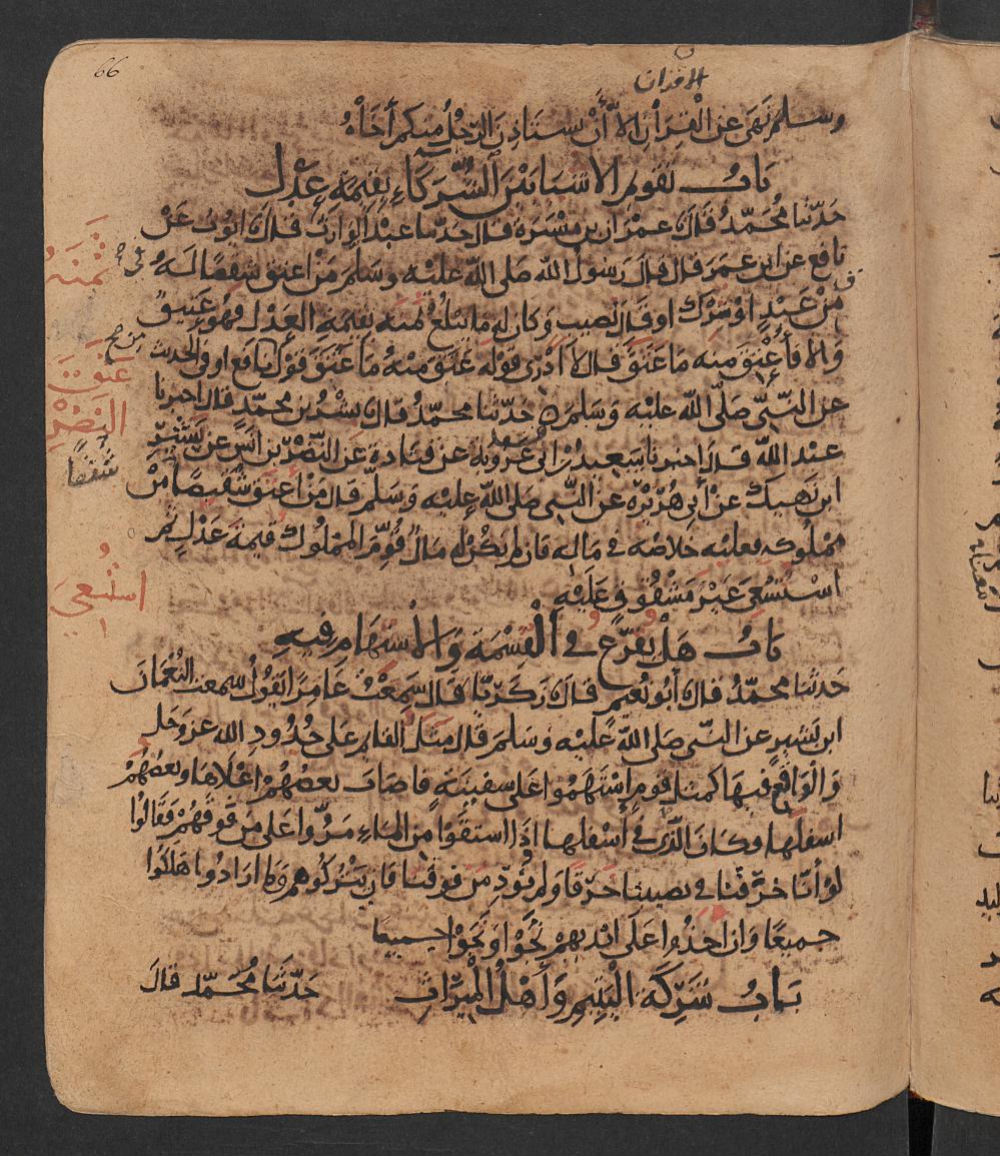 66
الاقران
وسلم نهى عن القران الا أن يستاذن الرجل منكم أخاه
باب تقويم الاشيا بين الشركاء بقيمة عدل
حدثنا محمد قال عمران بن ميسرة قال حدثنا عبد الوارث قال ايوب عن
نافع عن ابن عمر قال قال رسول الله صلى الله عليه وسلم من اعتق شقصا له
من عبد او شرك او قال نصيب وكان له ما يبلغ ثمنه بقيمة العدل فهو عتيق
والا فأعتق منه ما عتق قال لا أدرى قوله عتق منه ما عتق قول نافع او في الحديث
عن النبي صلى الله عليه وسلم ه حدثنا محمد قال بشر بن محمد قال اخبرنا
عبد الله قال اخبرنا سعيد بن ابى عروبة عن قتادة عن النضر بن انس عن بشير
ابن نهيك عن أبى هريرة عن النبي صلى الله عليه وسلم قال من اعتق شقيصا من
مملوكه فعليه خلاصه في ماله فان لم يكن له مال قوم المملوك قيمة عدل ثم
استسعى غير مشقوق عليه
باب هل يقرع في القسمة والاستهام فيه
حدثنا محمد قال أبو نعيم قال زكريا قال سمعت عامرا يقول سمعت النعمان
ابن بشير عن النبي صلى الله عليه وسلم قال مثل القايم على حدود الله عز وجل
والواقع فيها كمثل قوم استهموا على سفينة فاصاب بعضهم اعلاها وبعضهم
اسفلها وكان الذى في أسفلها اذا استقوا من الماء مروا على من فوقهم فقالوا
لو أنا خرقنا في نصيبنا خرقا ولم نوذ من فوقنا فان يتركوهم وما ارادوا هلكوا
جميعا وان اخذوا على ايديهم نجوا ونجوا جميعا
باب شركة اليتيم وأهل الميراث حدثنا محمد قال
ثمنه
عتق
النضر
شقصا
استسعي